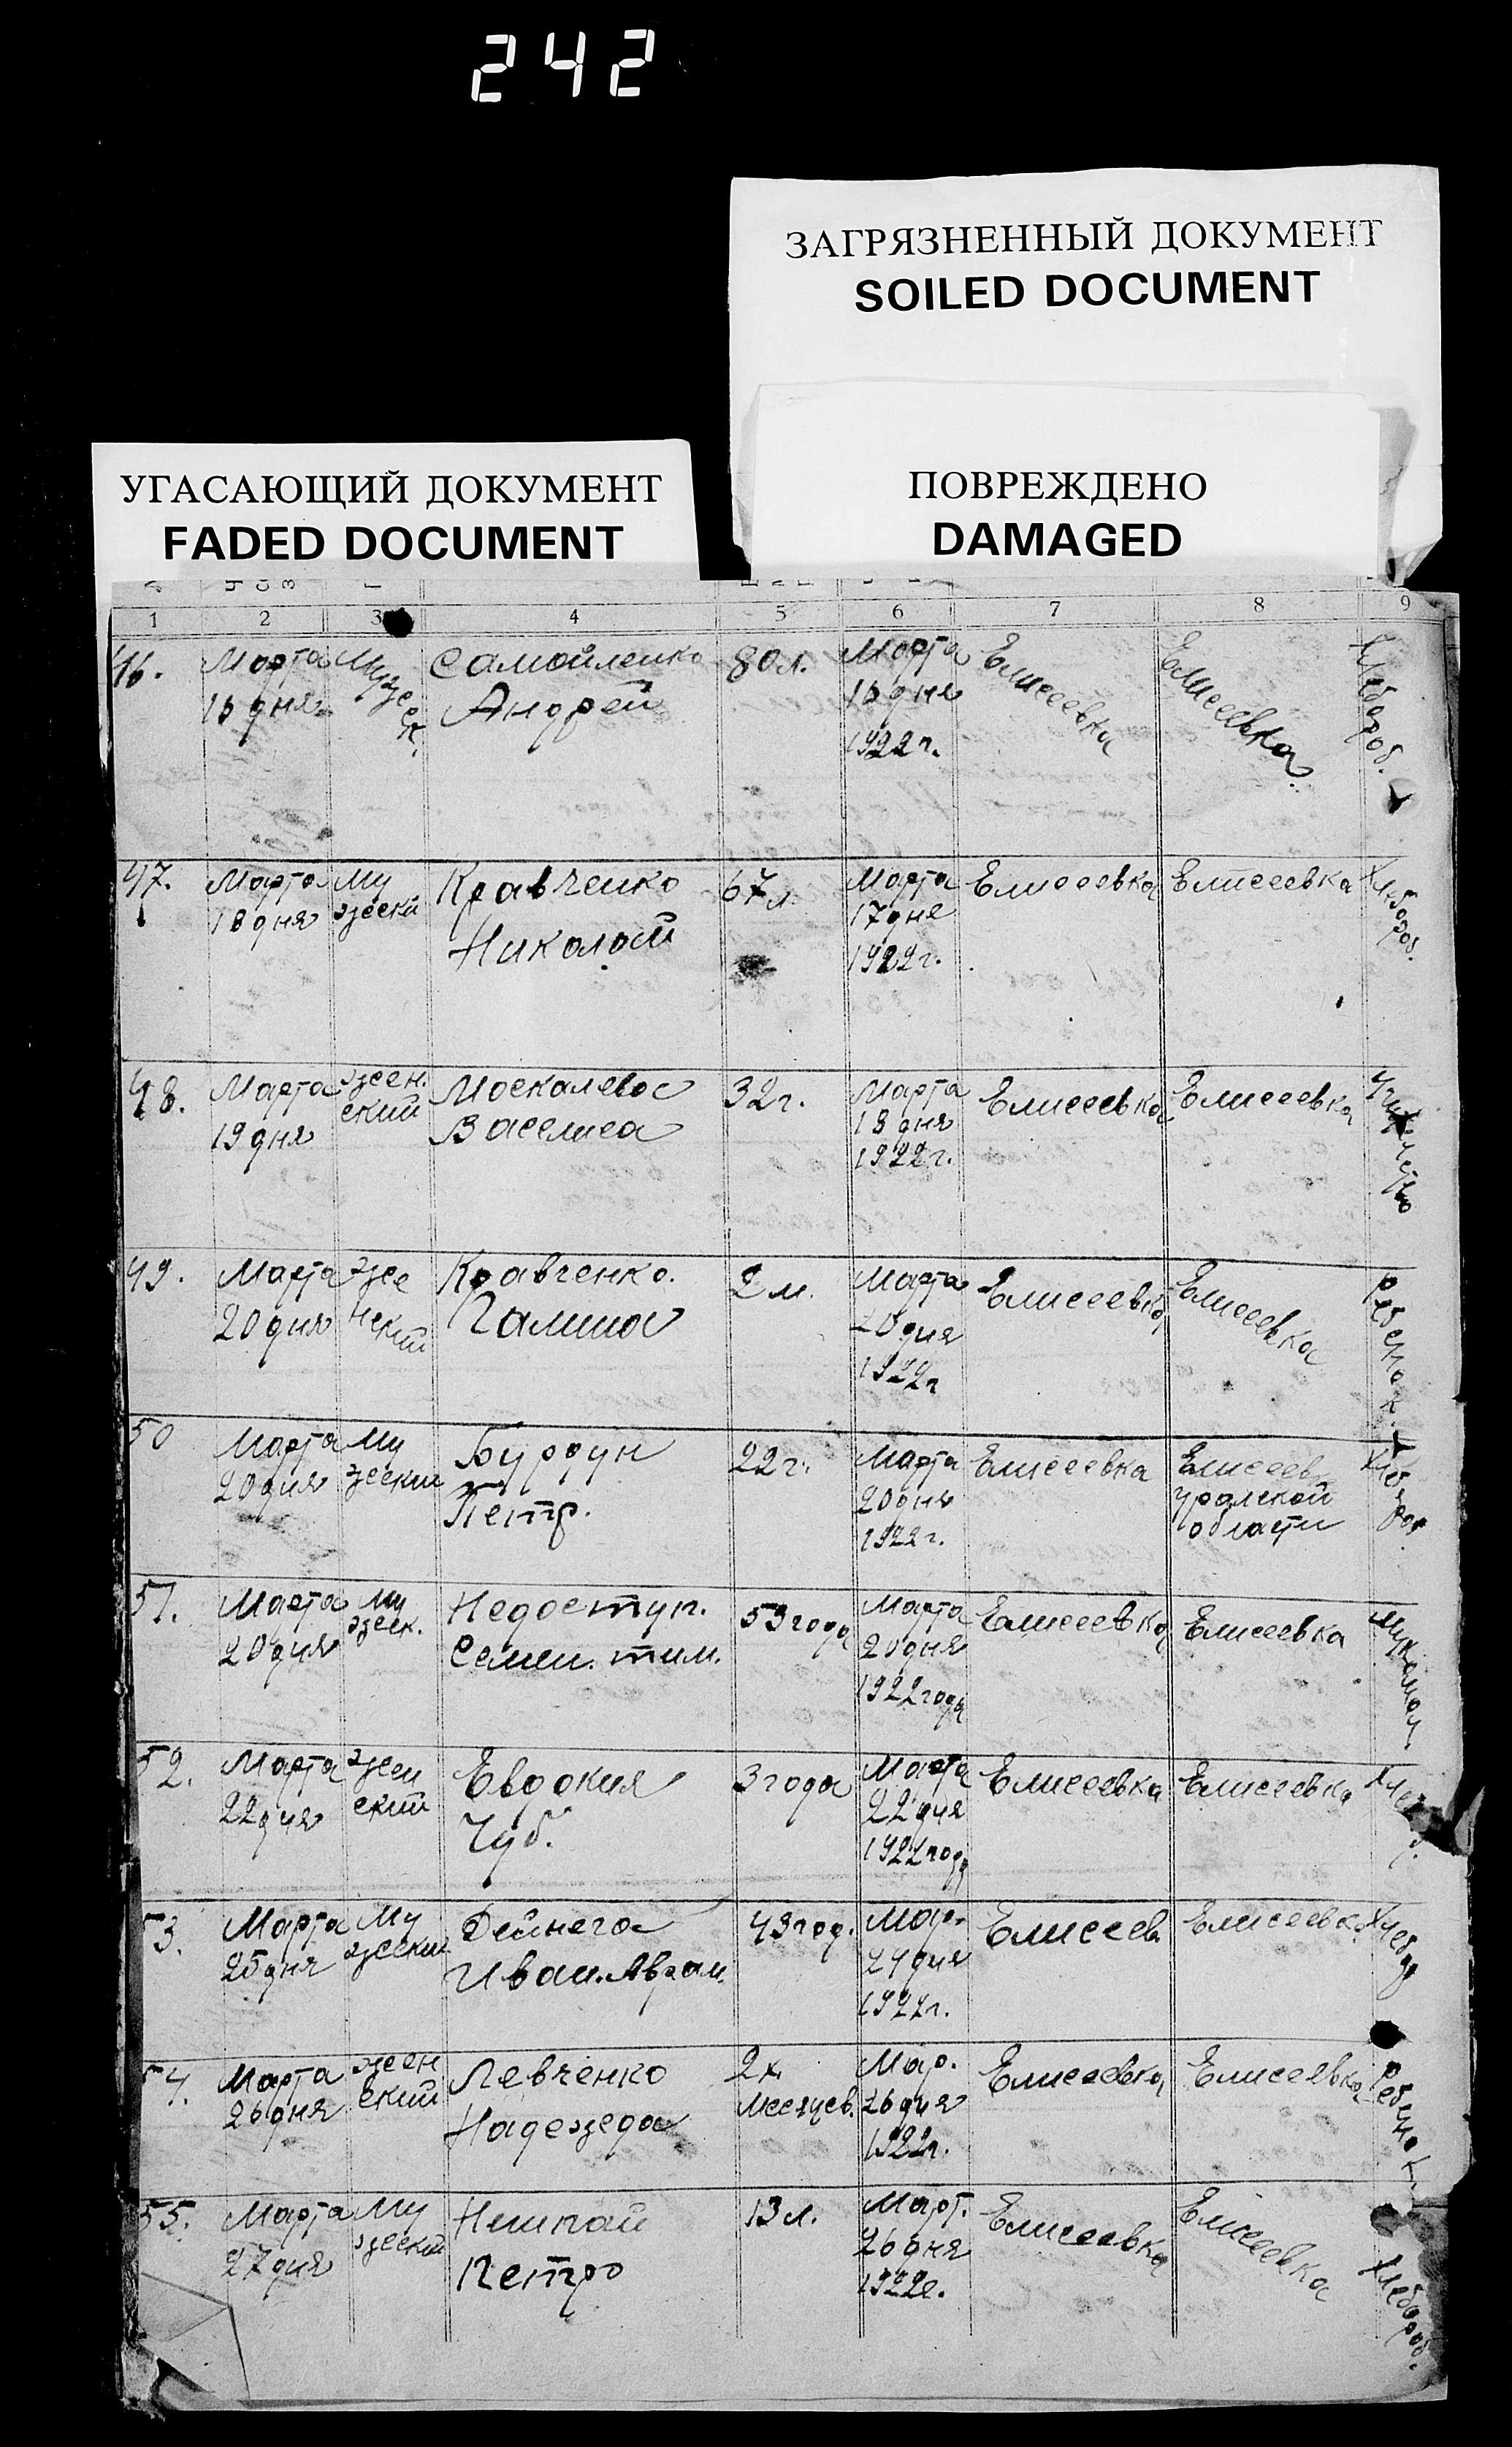 242
ЗАГРЯЗНЕННЫЙ ДОКУМЕНТ
SOILED DOCUMENT
УГАСАЮЩИЙ ДОКУМЕНТ
FADED DOCUMENT
ПОВРЕЖДЕНО
DAMAGED
1 2 3 4 5 6 7 8 9
46. Марта Мужеск. Самойленко 80 л. Марта Елисеевка Елисеевка Хлебороб.
дня Андрей дня
1922 г.
47. Марта Му Кравченко 67 л. Марта Елисеевка Елисеевка Хлебороб.
18 дня жески Николай 17 дне
1922 г.
48. Марта жен. Москалева 32 г. Марта Елисеевка Елисеевка
19 дня ский Васелиса 18 дня
1922 г.
49. Марта Же Кравченко. 2 м. Марта Елисеевка Елисеевка Ребенок.
20 дня нский Галина дня
1922 г
50 Марта Му Бурдун 22 г. Марта Елисеевка Елисеев
20 дня жеский Петр. 20 дня уралской
1922 г. области
51. Марта Му Недоступ. 53 года Марта Елисеевка Елисеевка
20 дня жеск. Семен. тим. 20 дня
1922 года
52. Марта жен Евдокия 3 года Марта Елисеевка Елисеевка
22 дня ский Чуб. 22 дня
1922 года
53. Марта Му Дейнега 43 год. Мар. Елисеев Елисеевка
25 дня жеский Иван. Аврам. 24 дня
1922 г.
54. Марта жен Левченко 2 х. Мар. Елисеевка Елисеевка Ребенок
26 дня ский Надежда Месяцев. 26 дня
1922 г.
55. Марта Му 13 л. Март. Елисеевка Елисеевка Хлебороб.
27 дня жеский Петро 26 дня
1922 г.